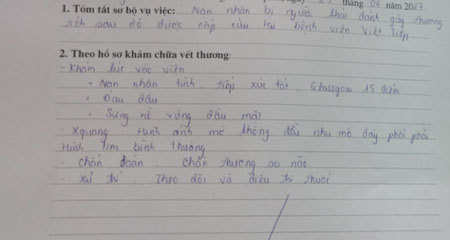 tháng 06 năm 2017
1. Tóm tắt sơ bộ vụ việc: Nạn nhân bị người khác đánh gây thương
tích sau đó được cấp cứu tại bệnh viện Việt Tiệp
2. Theo hồ sơ khám chữa vết thương:
- Khám lúc vào viện
+ Nạn nhân tỉnh, tiếp xúc tốt, Glasgow 15 điểm
+ Đau đầu
+ Sưng nề vùng đầu mặt
- Xquang hình ảnh mờ không đều nhu mô đáy phổi phải
Hình tim bình thường
- Chẩn đoán: Chấn thương sọ não
- Xử trí: Theo dõi và điều trị thuốc